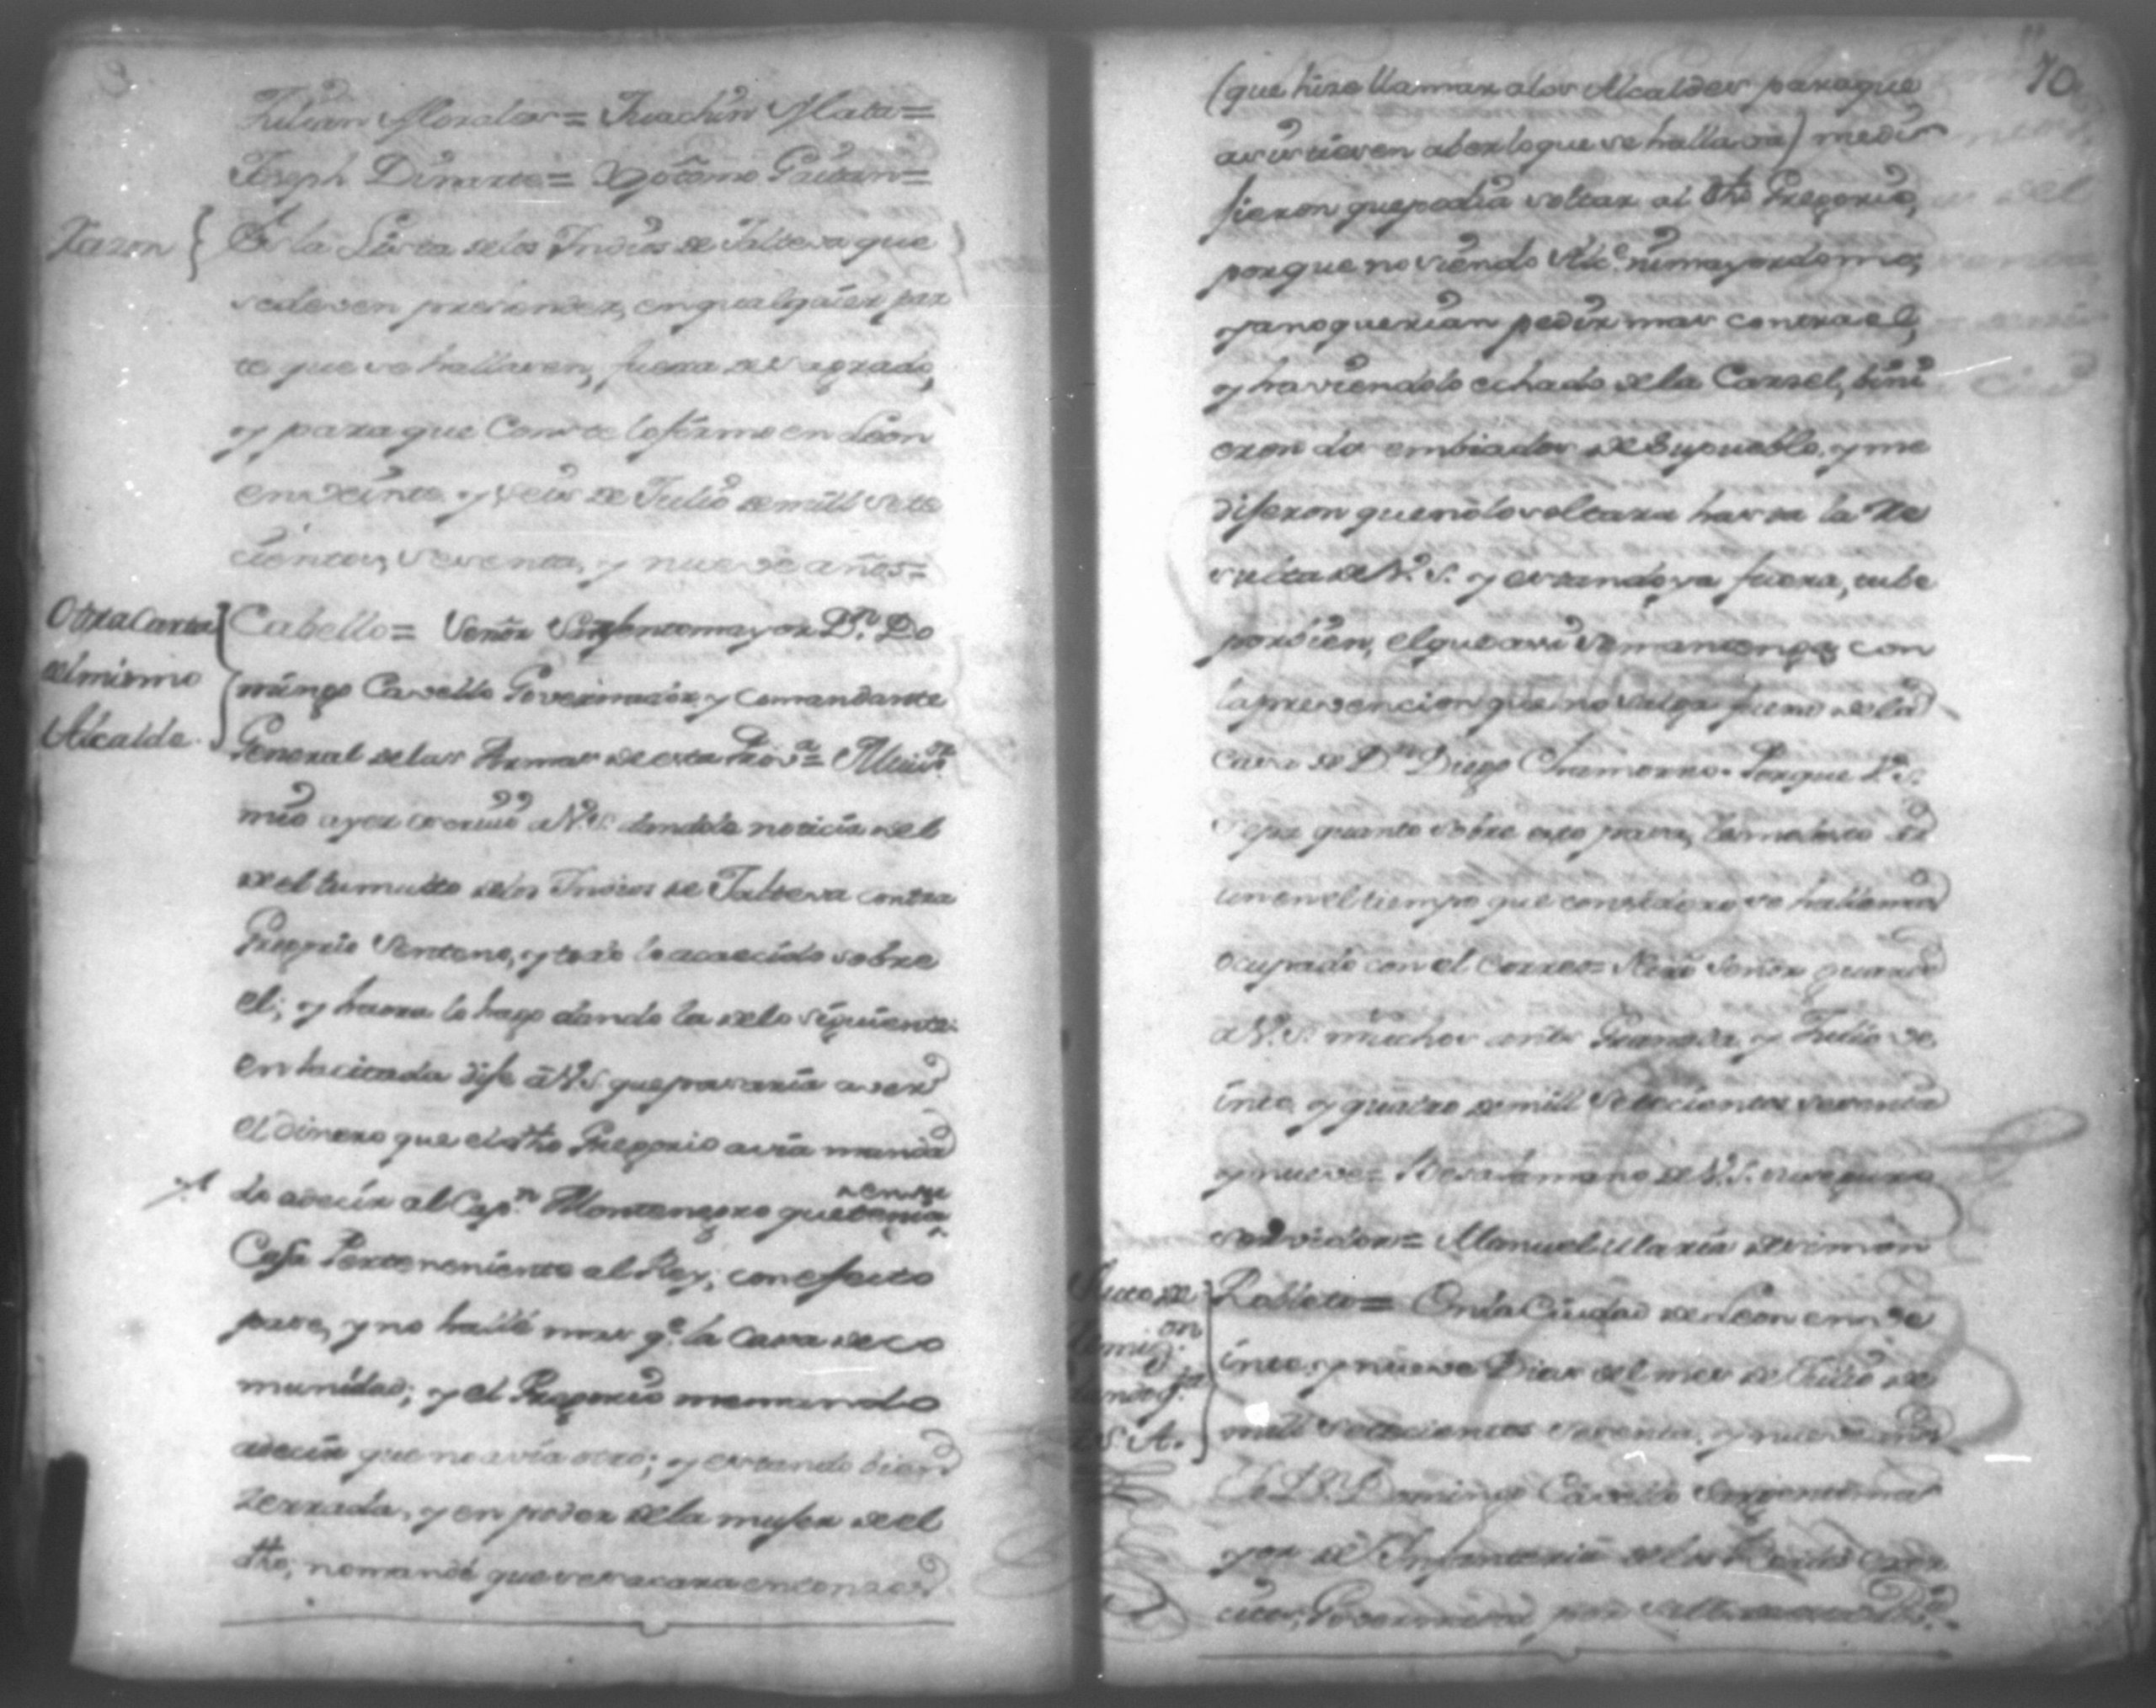 Julian Morales = Juachin Mata =
Joseph Dinarte = Gaitan =
Razon
Es la Lista de los Indios de Jalteva que
se deven prerender, en qualquier par
te que se hallasen, fuera de sagrado,
y para que Conste lo firmo en Leon
en veinte, y seis de Julio de mill sete
cientos, sesenta, y nueve años =
Otra Carta
del mismo
Alcalde.
Cabello = Señor Sarjentomayor Dn. Do
mingo Cavello Governador, y Comandante
General de las Armas de esta Prova. = Mui Sor.
mio ayer escrivi a V. S. dandole noticia del
del tumulto de los Indios de Jalteva contra
Gregorio Senteno, y todo lo acaecido sobre
el; y haora lo hago dando la de lo siguiente
en la citada dije á V. S. que pasaria a ver
el dinero que el dho Gregorio avia manda
do a decir al Capn. Montenegro que tenia
Casa Perteneniente al Rey, con efecto
pase, y no hallé mas qe. la Casa de co
munidad; y el Gregorio me mando
a decir que no avia otro; y estando bien
zerrada, y en poder de la mujer de el
dho, no mandé que se sacara entonces
70
(que hize llamar a los Alcaldes para que
asistiesen a ber lo que se hallava) me di
jieron que podia soltar al dho Gregorio,
porque no siendo Alce. ni mayordomo,
ya no querian pedir mas contra el,
y haviendolo echado de la Carsel, bini
eron do embiados de su pueblo, y me
dijeron que nó lo soltara hasta la re
sulta de V. S. y estando ya fuera, tube
por bien, el que assi se mantenga con
la prevencion que no salga fuera de la
casa de Dn. Diego Chamorro. Porque V. S.
sepa quanto sobre esto pasa,
un en el tiempo que considero se hallará
ocupado con el Correo = Ntro Señor guarde
a V. S. muchos años Granada, y Julio ve
inte, y quatro de mill setecientos sesenta
y nueve = Besa la mano de V. S. su seguro
servidor = Manuel Maria de simon
Auto de
on
S. A.
Robleto = En la Ciudad de Leon en ve
inte, y nueve Dias del mes de Julio de
mill setecientos sesenta, y nueve años
Dn. Domingo Cavello Sargentoma
yor de Infanteria de los Reales Exer
citos, Governador por